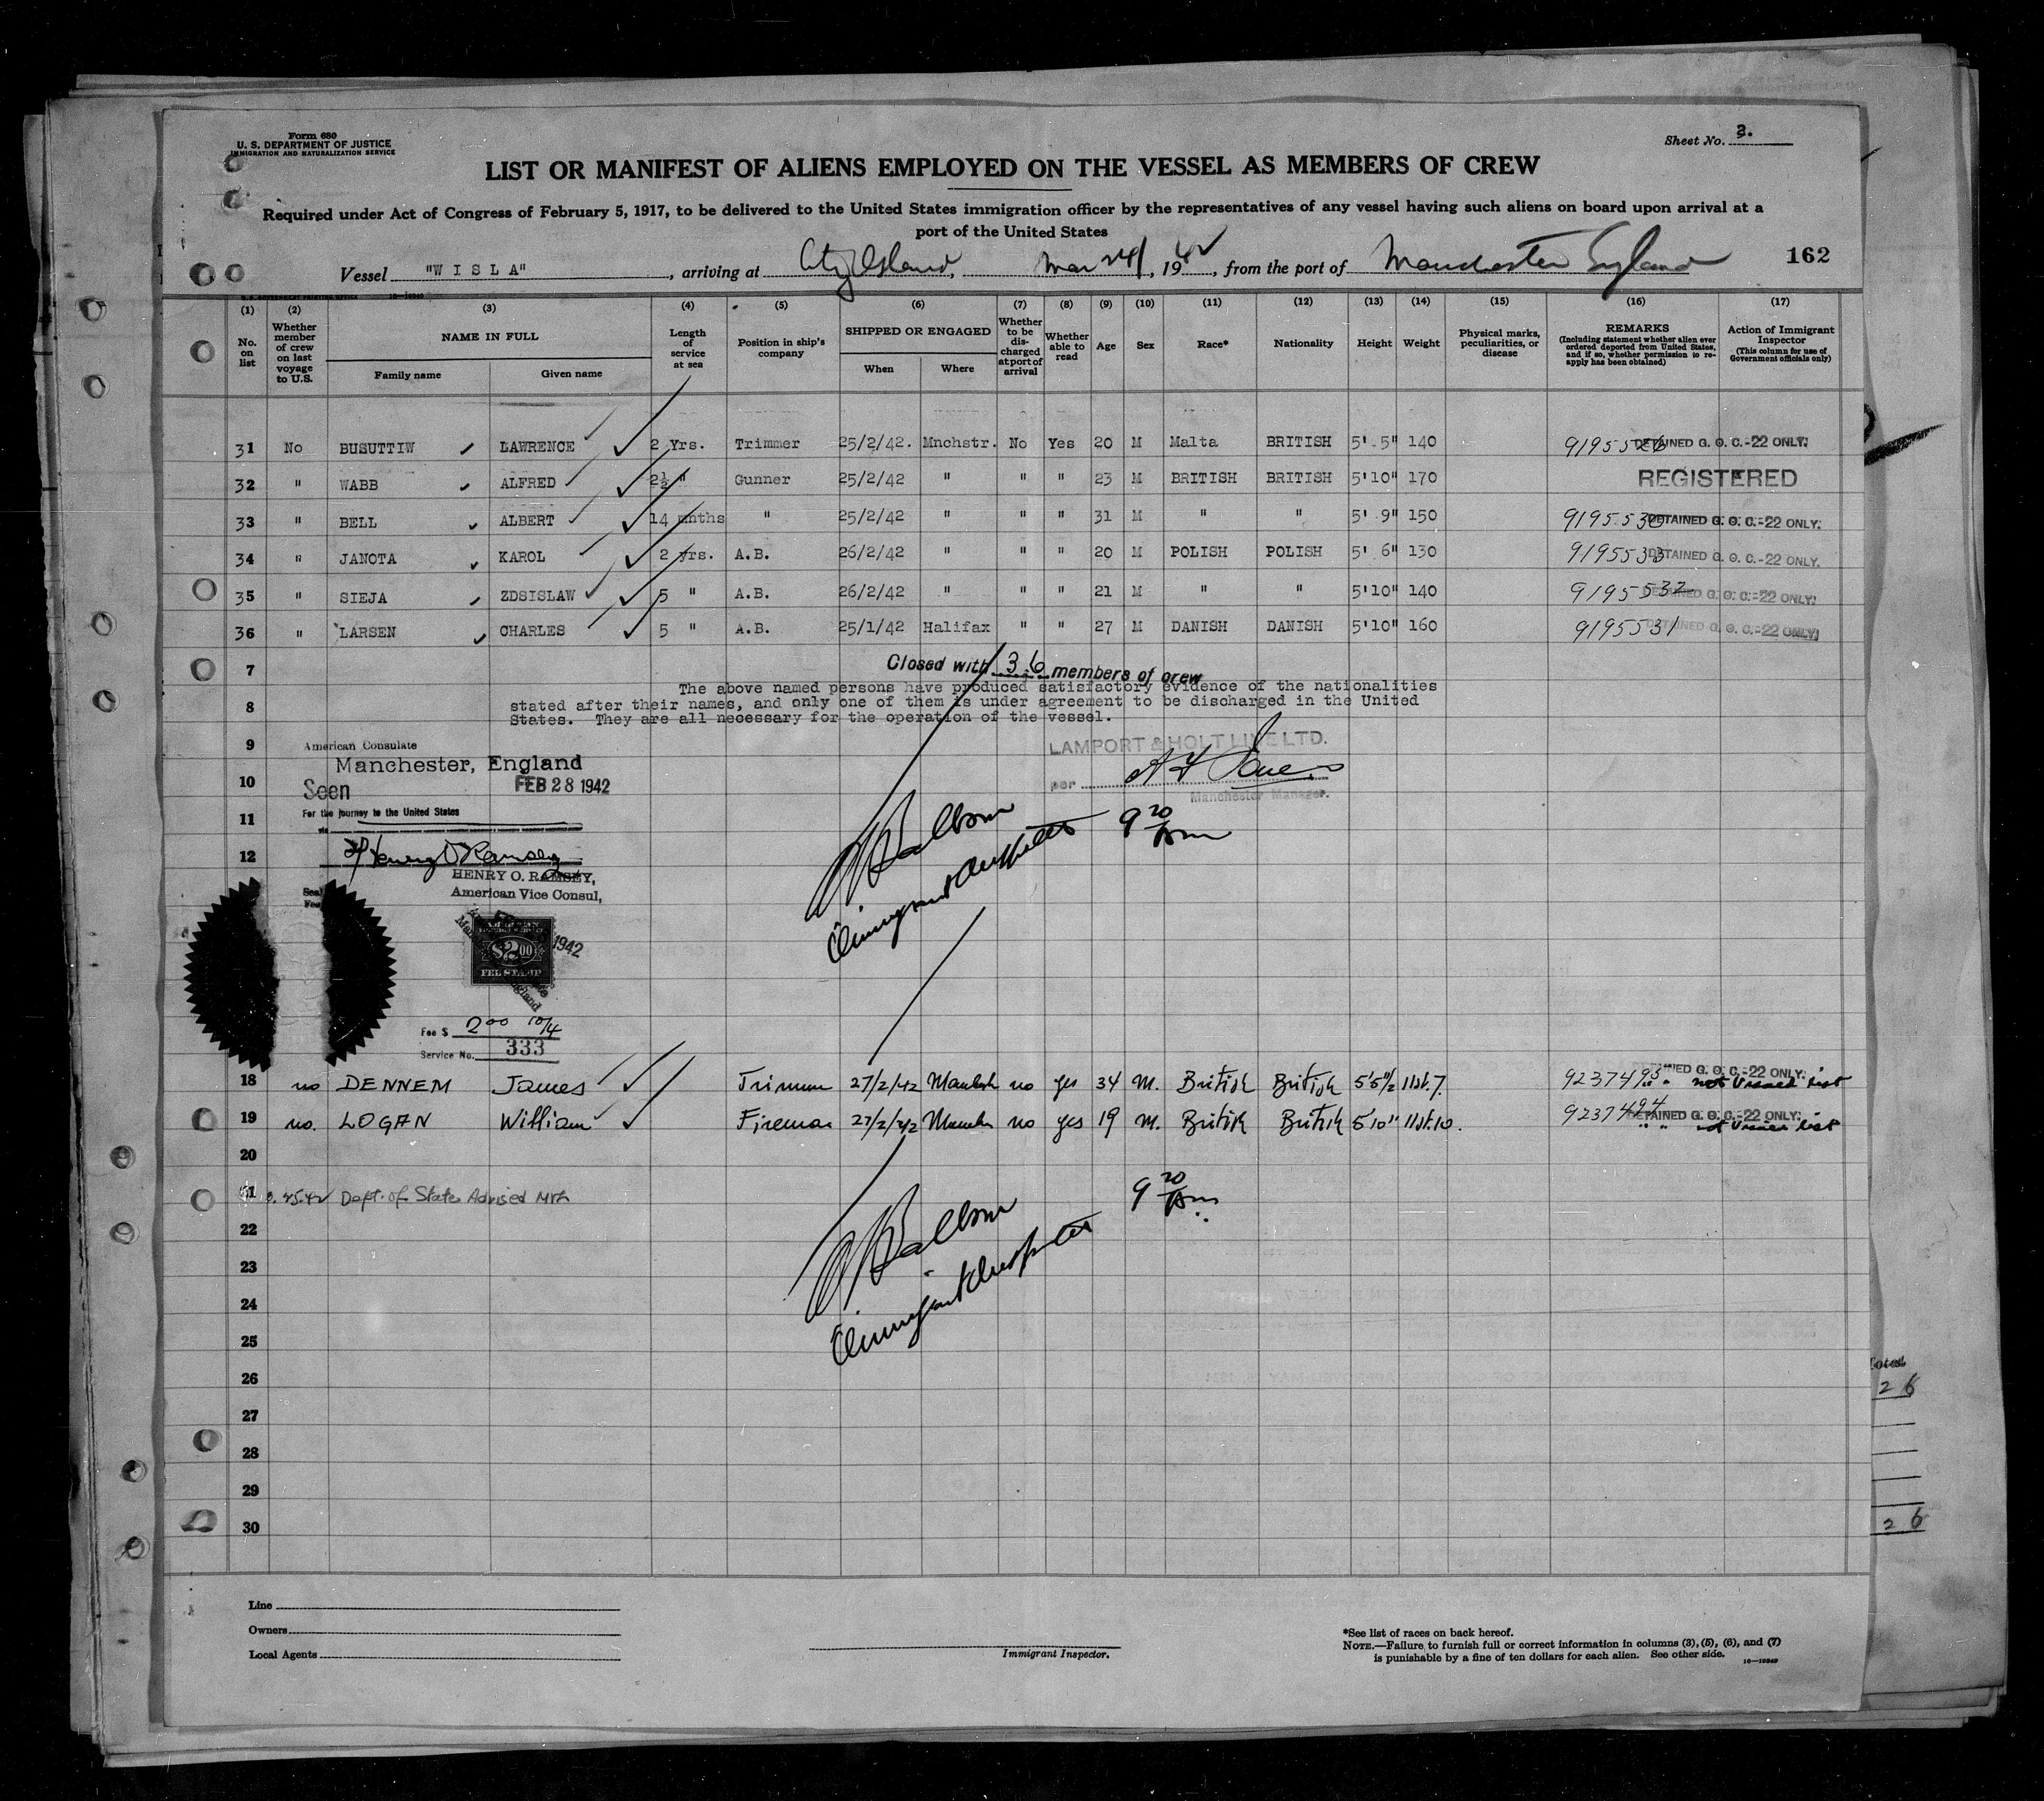 Form 680
U. S. DEPARTMENT OF JUSTICE
IMMIGRATION AND NATURALIZATION SERVICE
Sheet No. 3.
LIST OR MANIFEST OF ALIENS EMPLOYED ON THE VESSEL AS MEMBERS OF CREW
Required under Act of Congress of February 5, 1917, to be delivered to the United States immigration officer by the representatives of any vessel having such aliens on board upon arrival at a
port of the United States
Vessel "WISLA", arriving at City Island, Mar 24, 1942, from the port of Manchester England 162
(1) No. on list
(2) Whether member of crew on last voyage to U.S.
(3) NAME IN FULL Family name Given name
(4) Length of service at sea
(5) Position in ship's company
(6) SHIPPED OR ENGAGED When Where
(7) Whether to be discharged at port of arrival
(8) Whether able to read
(9) Age
(10) Sex
(11) Race*
(12) Nationality
(13) Height
(14) Weight
(15) Physical marks, peculiarities, or disease
(16) REMARKS (Including statement whether alien ever ordered deported from United States, and if so, whether permission to reapply has been obtained)
(17) Action of Immigrant Inspector (This column for use of Government officials only)
31 No BUSUTTIW LAWRENCE 2 Yrs. Trimmer 25/2/42. Mnchstr. No Yes 20 M Malta BRITISH 5'.5" 140 DETAINED G. O. C.-22 ONLY.
32 " WABB ALFRED 2½ " Gunner 25/2/42 " " " 23 M BRITISH BRITISH 5'10" 170 REGISTERED
33 " BELL ALBERT 14 mnths " 25/2/42 " " " 31 M " " 5'.9" 150 9195530 DETAINED G. O. C.-22 ONLY.
34 " JANOTA KAROL 2 yrs. A.B. 26/2/42 " " " 20 M POLISH POLISH 5' 6" 130 9195533 DETAINED G. O. C.-22 ONLY.
35 " SIEJA ZDSISLAW 5 " A.B. 26/2/42 " " " 21 M " " 5'10" 140 9195532 DETAINED G. O. C.-22 ONLY.
36 " LARSEN CHARLES 5 " A.B. 25/1/42 Halifax " " 27 M DANISH DANISH 5'10" 160 9195531 DETAINED G. O. C.-22 ONLY.
7 Closed with 36 members of crew
The above named persons have produced satisfactory evidence of the nationalities
8 stated after their names, and only one of them is under agreement to be discharged in the United
States. They are all necessary for the operation of the vessel.
9 American Consulate LAMPORT & HOLT LINE LTD.
Manchester, England
10 Seen FEB 28 1942 per
Manchester Manager.
11 For the journey to the United States
via 9 20 pm
12 Henry O Ramsey
HENRY O. RAMSEY,
American Vice Consul,
Immigrant Inspector
Seal
Fee
1942
$2.00
FEE STAMP
Fee $ 2 00 10/4
Service No. 333
18 no DENNEM James Trimmer 27/2/42 no yes 34 M. British British 5'5"1/2 11st.7. 9237493 DETAINED G. O. C.-22 ONLY. not Visaed list
19 no. LOGAN William Fireman 27/2/42 no yes 19 M. British British 5'10" 11st.10. 9237494 DETAINED G. O. C.-22 ONLY. not Visaed list
20
21 3.25.42 Dept. of State Advised
9 20 pm
22
23
24
Immigrant Inspector
25
26
27
28
29
30
Total
26
26
Line
Owners
Local Agents
Immigrant Inspector.
*See list of races on back hereof.
NOTE.—Failure to furnish full or correct information in columns (3), (5), (6), and (7)
is punishable by a fine of ten dollars for each alien. See other side. 16—10349